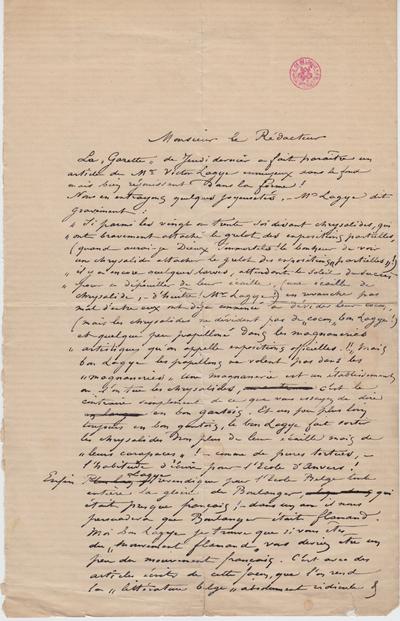 Monsieur le Rédacteur
La "Gazette" de Jeudi dernier a fait paraître un
article de Mr Victor Lagye ennuyeux dans le fond
mais bien réjouissant dans la forme!
Nous en extrayons quelques joyeusetés. Mr Lagye dit
gravement:
"Si parmi les vingt ou trente soi disant chrysalides, qui
"ont bravement attaché le grelot des expositions partielles,
(quand aurai-je Dieux immortels le bonheur de voir
un chrysalide attacher le grelot des expositions partielles!)
"il y a encore quelques larves, attendant le soleil du succès
"pour se dépouiller de leur écaille, (une écaille de
chrysalide, Mr Lagye!) en revanche pas
mal d'entre eux ont déjà commencé à dévider leur cocon,
(mais les chrysalides ne dévident pas de "cocon" bon Lagye!)
et quelque peu papillonné dans les magnaneries
"artistiques qu'on appelle expositions officielles.!!, Mais
bon Lagye les papillons ne volent pas dans les
"magnaneries" une magnanerie est un établissement
où l'on tue les chrysalides, c'est le
contraire simplement de ce que vous essayez de dire
en bon gantois. Et un peu plus loin
toujours en bon gantois, le bon Lagye fait sortir
les chrysalides non plus de leur écaille mais de
"leurs carapaces"! - comme de pures tortues, -
l'habitude d'écrire pour l'école d'Anvers!
Enfin Lagye revendique pour l'école Belge tout
entière la gloire de Boulanger, qui
était presque français; - dans un an il nous
persuadera que Boulanger était flamand.
Moi bon Lagye je trouve que si vous êtes
du "mouvement flamand" vous devriez être un
peu du mouvement français. C'est avec des
articles écrits de cette façon, que l'on rend
la "littérature belge" absolument ridicule &